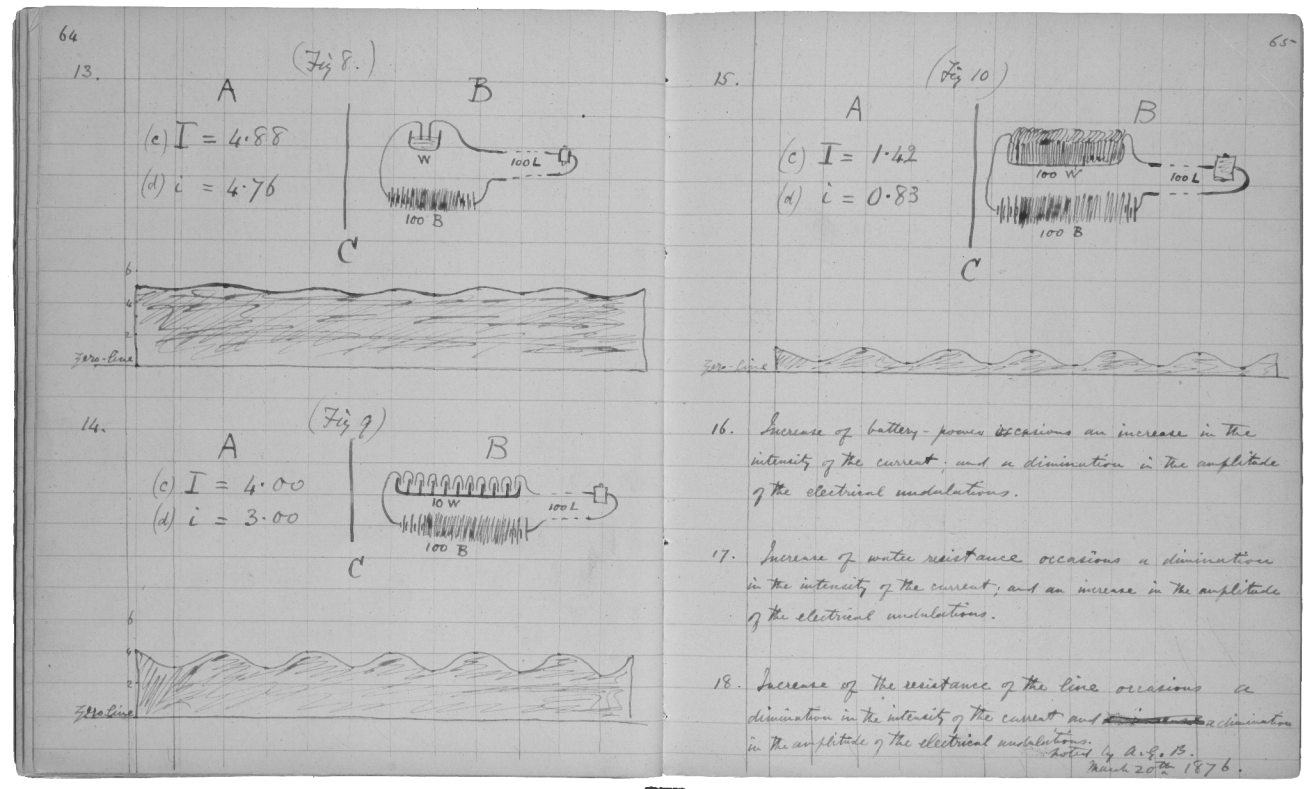 64
13.
(Fig 8.)
A
B
(c) I = 4.88
(d) i = 4.76
W
100 L
100 B
C
6
4
2
Zero-line
14.
(Fig 9)
A
B
(c) I = 4.00
(d) i = 3.00
10 W
100 L
100 B
C
6
4
2
Zero line
65
15.
(Fig 10)
A
B
(c) I = 1.42
(d) i = 0.83
100 W
100 L
100 B
C
Zero-line
16. Increase of battery-power occasions an increase in the
intensity of the current; and a diminution in the amplitude
of the electrical undulations.
17. Increase of water resistance occasions a diminution
in the intensity of the current; and an increase in the amplitude
of the electrical undulations.
18. Increase of the resistance of the line occasions a
diminution in the intensity of the current and a diminution
in the amplitude of the electrical undulations.
Noted by A.G.B.
March 20th 1876.